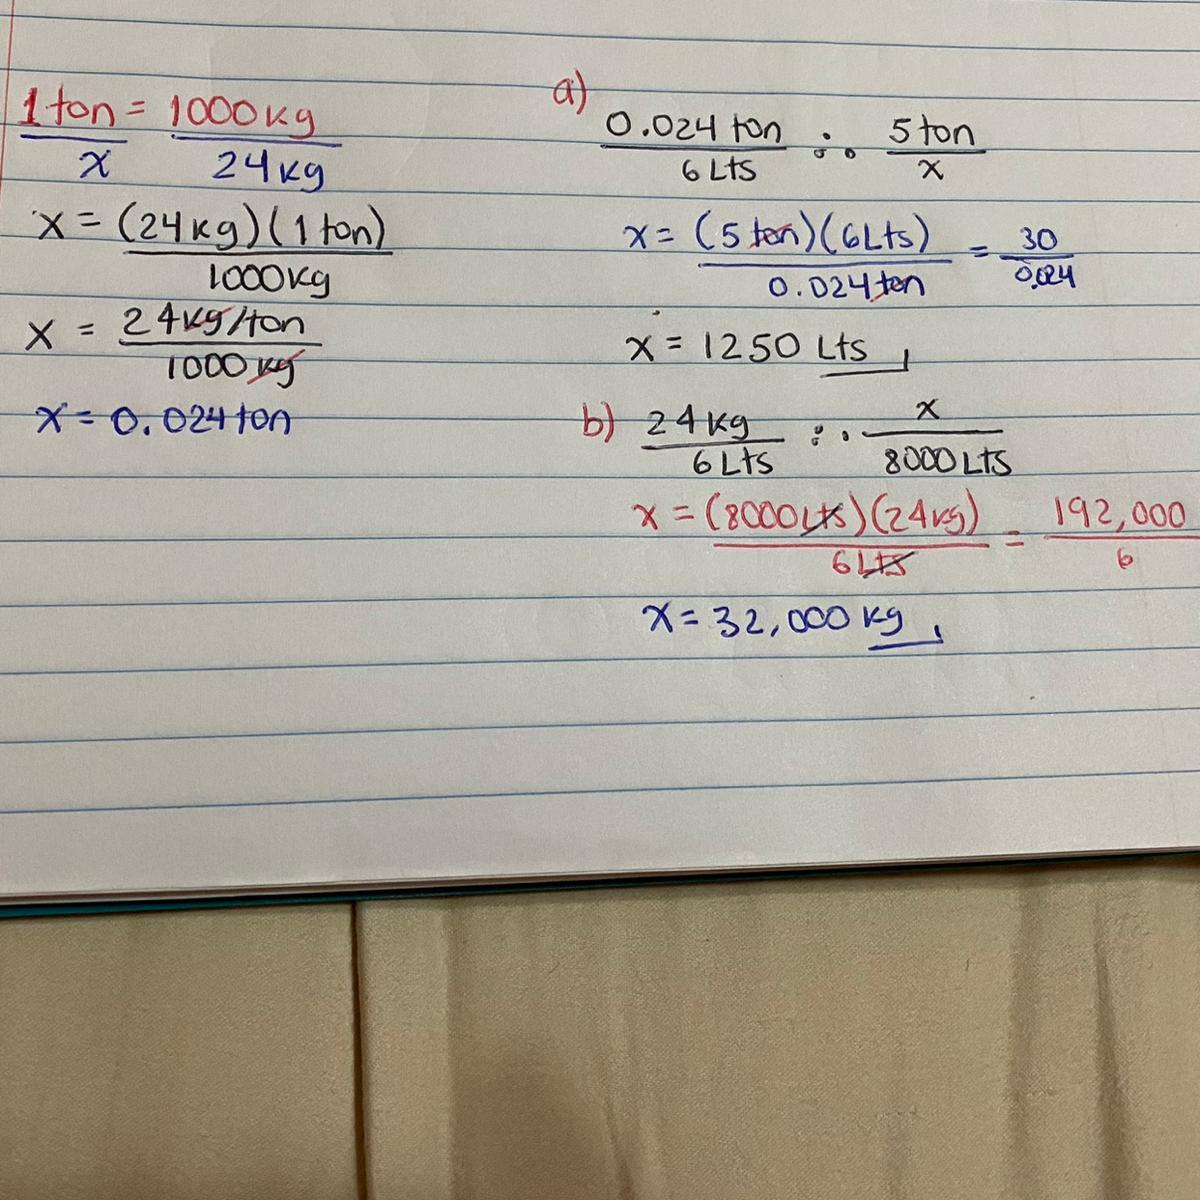 1 ton = 1000 kg
x 24 kg
x = (24 kg)(1 ton)
1000 kg
x = 24 kg/ton
1000 kg
x = 0.024 ton
a)
0.024 ton :· 5 ton
6 Lts x
x = (5 ton)(6 Lts) = 30
0.024 ton 0.024
x = 1250 Lts
b) 24 kg :· x
6 Lts 8000 Lts
x = (8000 Lts)(24 kg) = 192,000
6 Lts 6
x = 32,000 kg